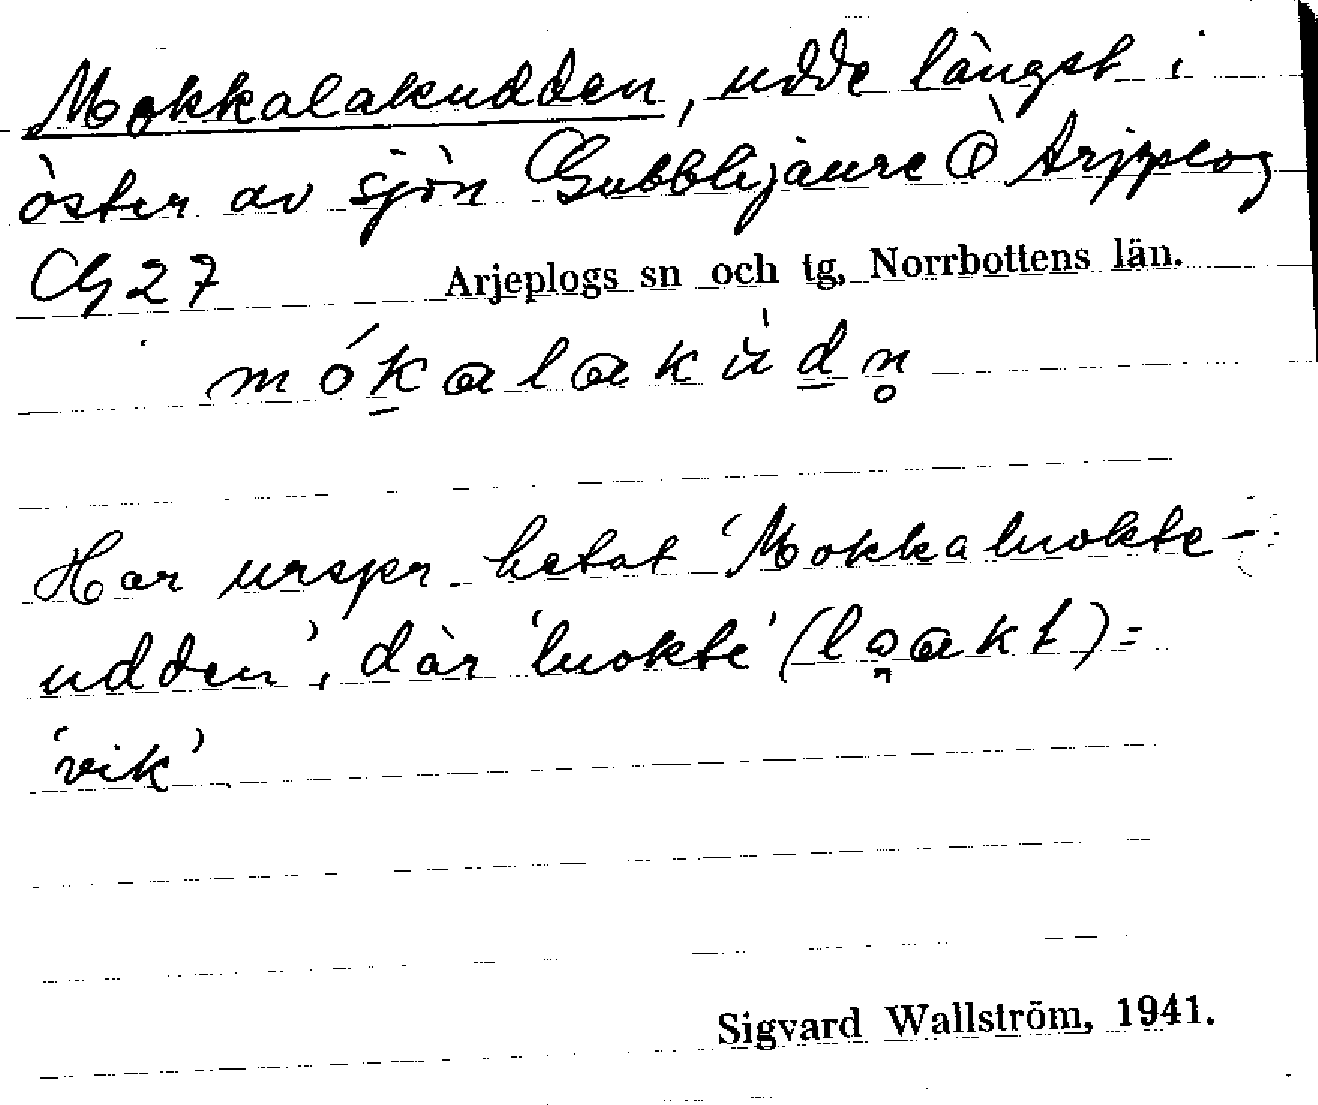 Mokkalakudden, udde längst i
öster av sjön Gubblijaure Ö Arjeplog
CG 27 Arjeplogs sn och tg, Norrbottens län.
mókalakùdn̥
Har urspr. hetat 'Mokkaluokte-
udden', där 'luokte' (lo̯akt) =
'vik'
Sigvard Wallström, 1941.